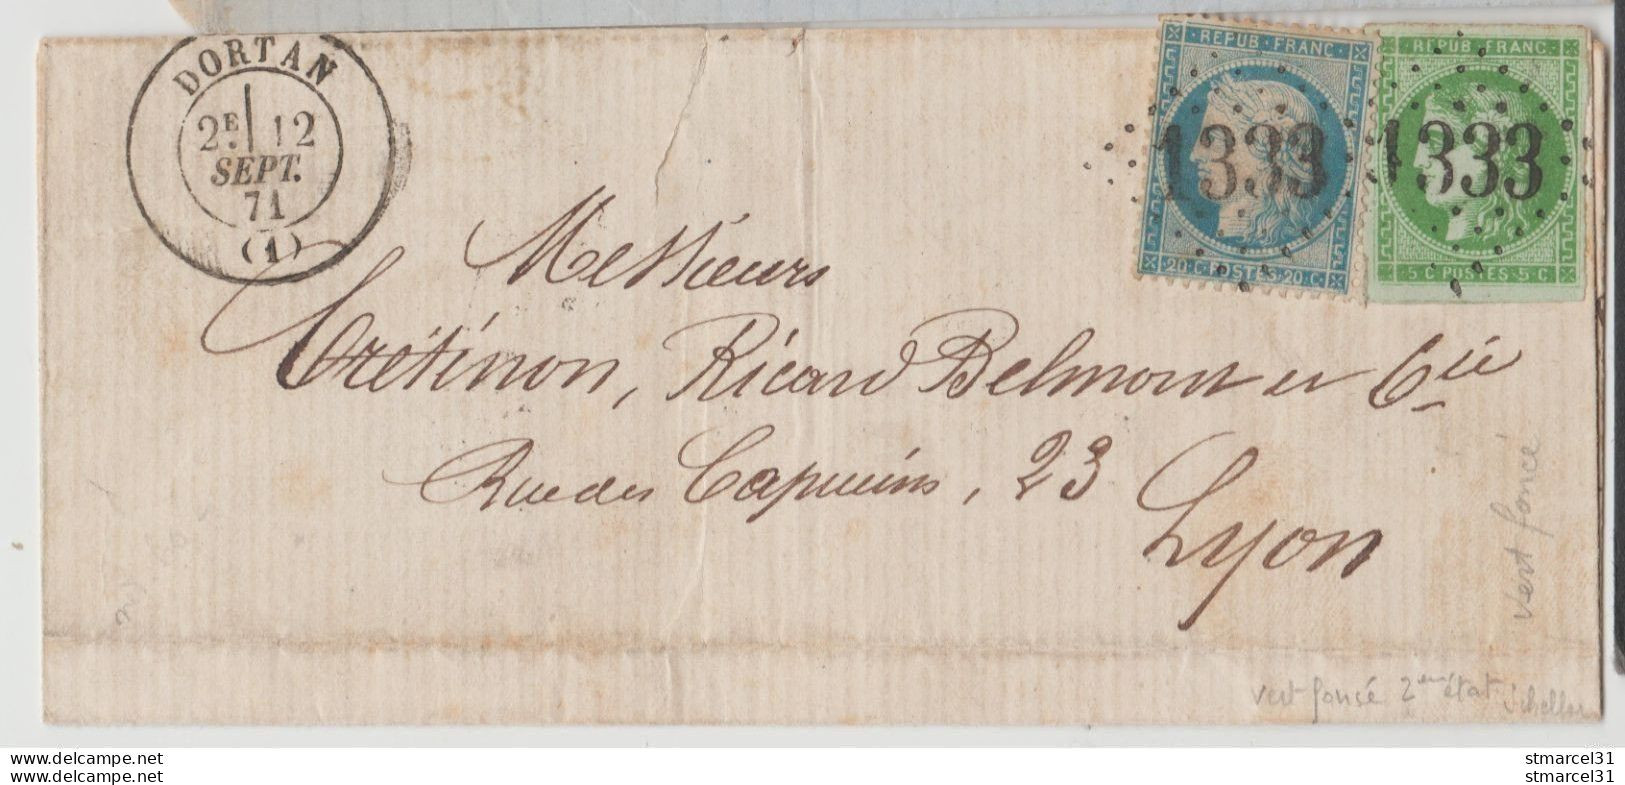 DORTAN
2E 12
SEPT.
71
(1)
REPUB FRANC
1333
20 C POSTES 20 C
REPUB FRANC
1333
5 C POSTES 5 C
Messieurs
Crétinon, Ricard Belmont et Cie
Rue des Capucins, 23
Lyon
vert foncé
vert foncé 2em état Scheller
stmarcel31
stmarcel31
www.delcampe.net
www.delcampe.net